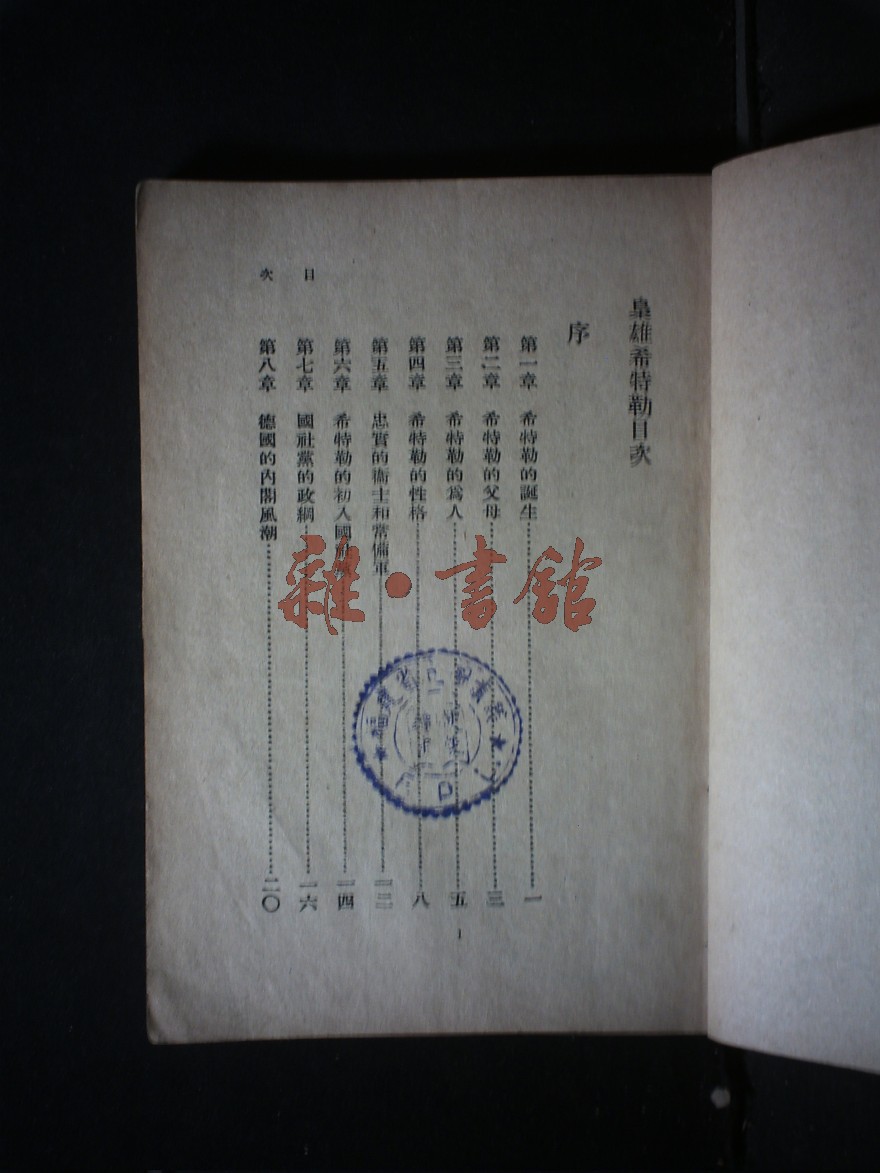 梟雄希特勒目次
序
第一章 希特勒的誕生 一
第二章 希特勒的父母 三
第三章 希特勒的爲人 五
第四章 希特勒的性格 八
第五章 忠實的衞士和常備軍 一三
第六章 希特勒的初入國 一四
第七章 國社黨的政綱 一六
第八章 德國的內閣風潮 二〇
目次
1
雜·書館